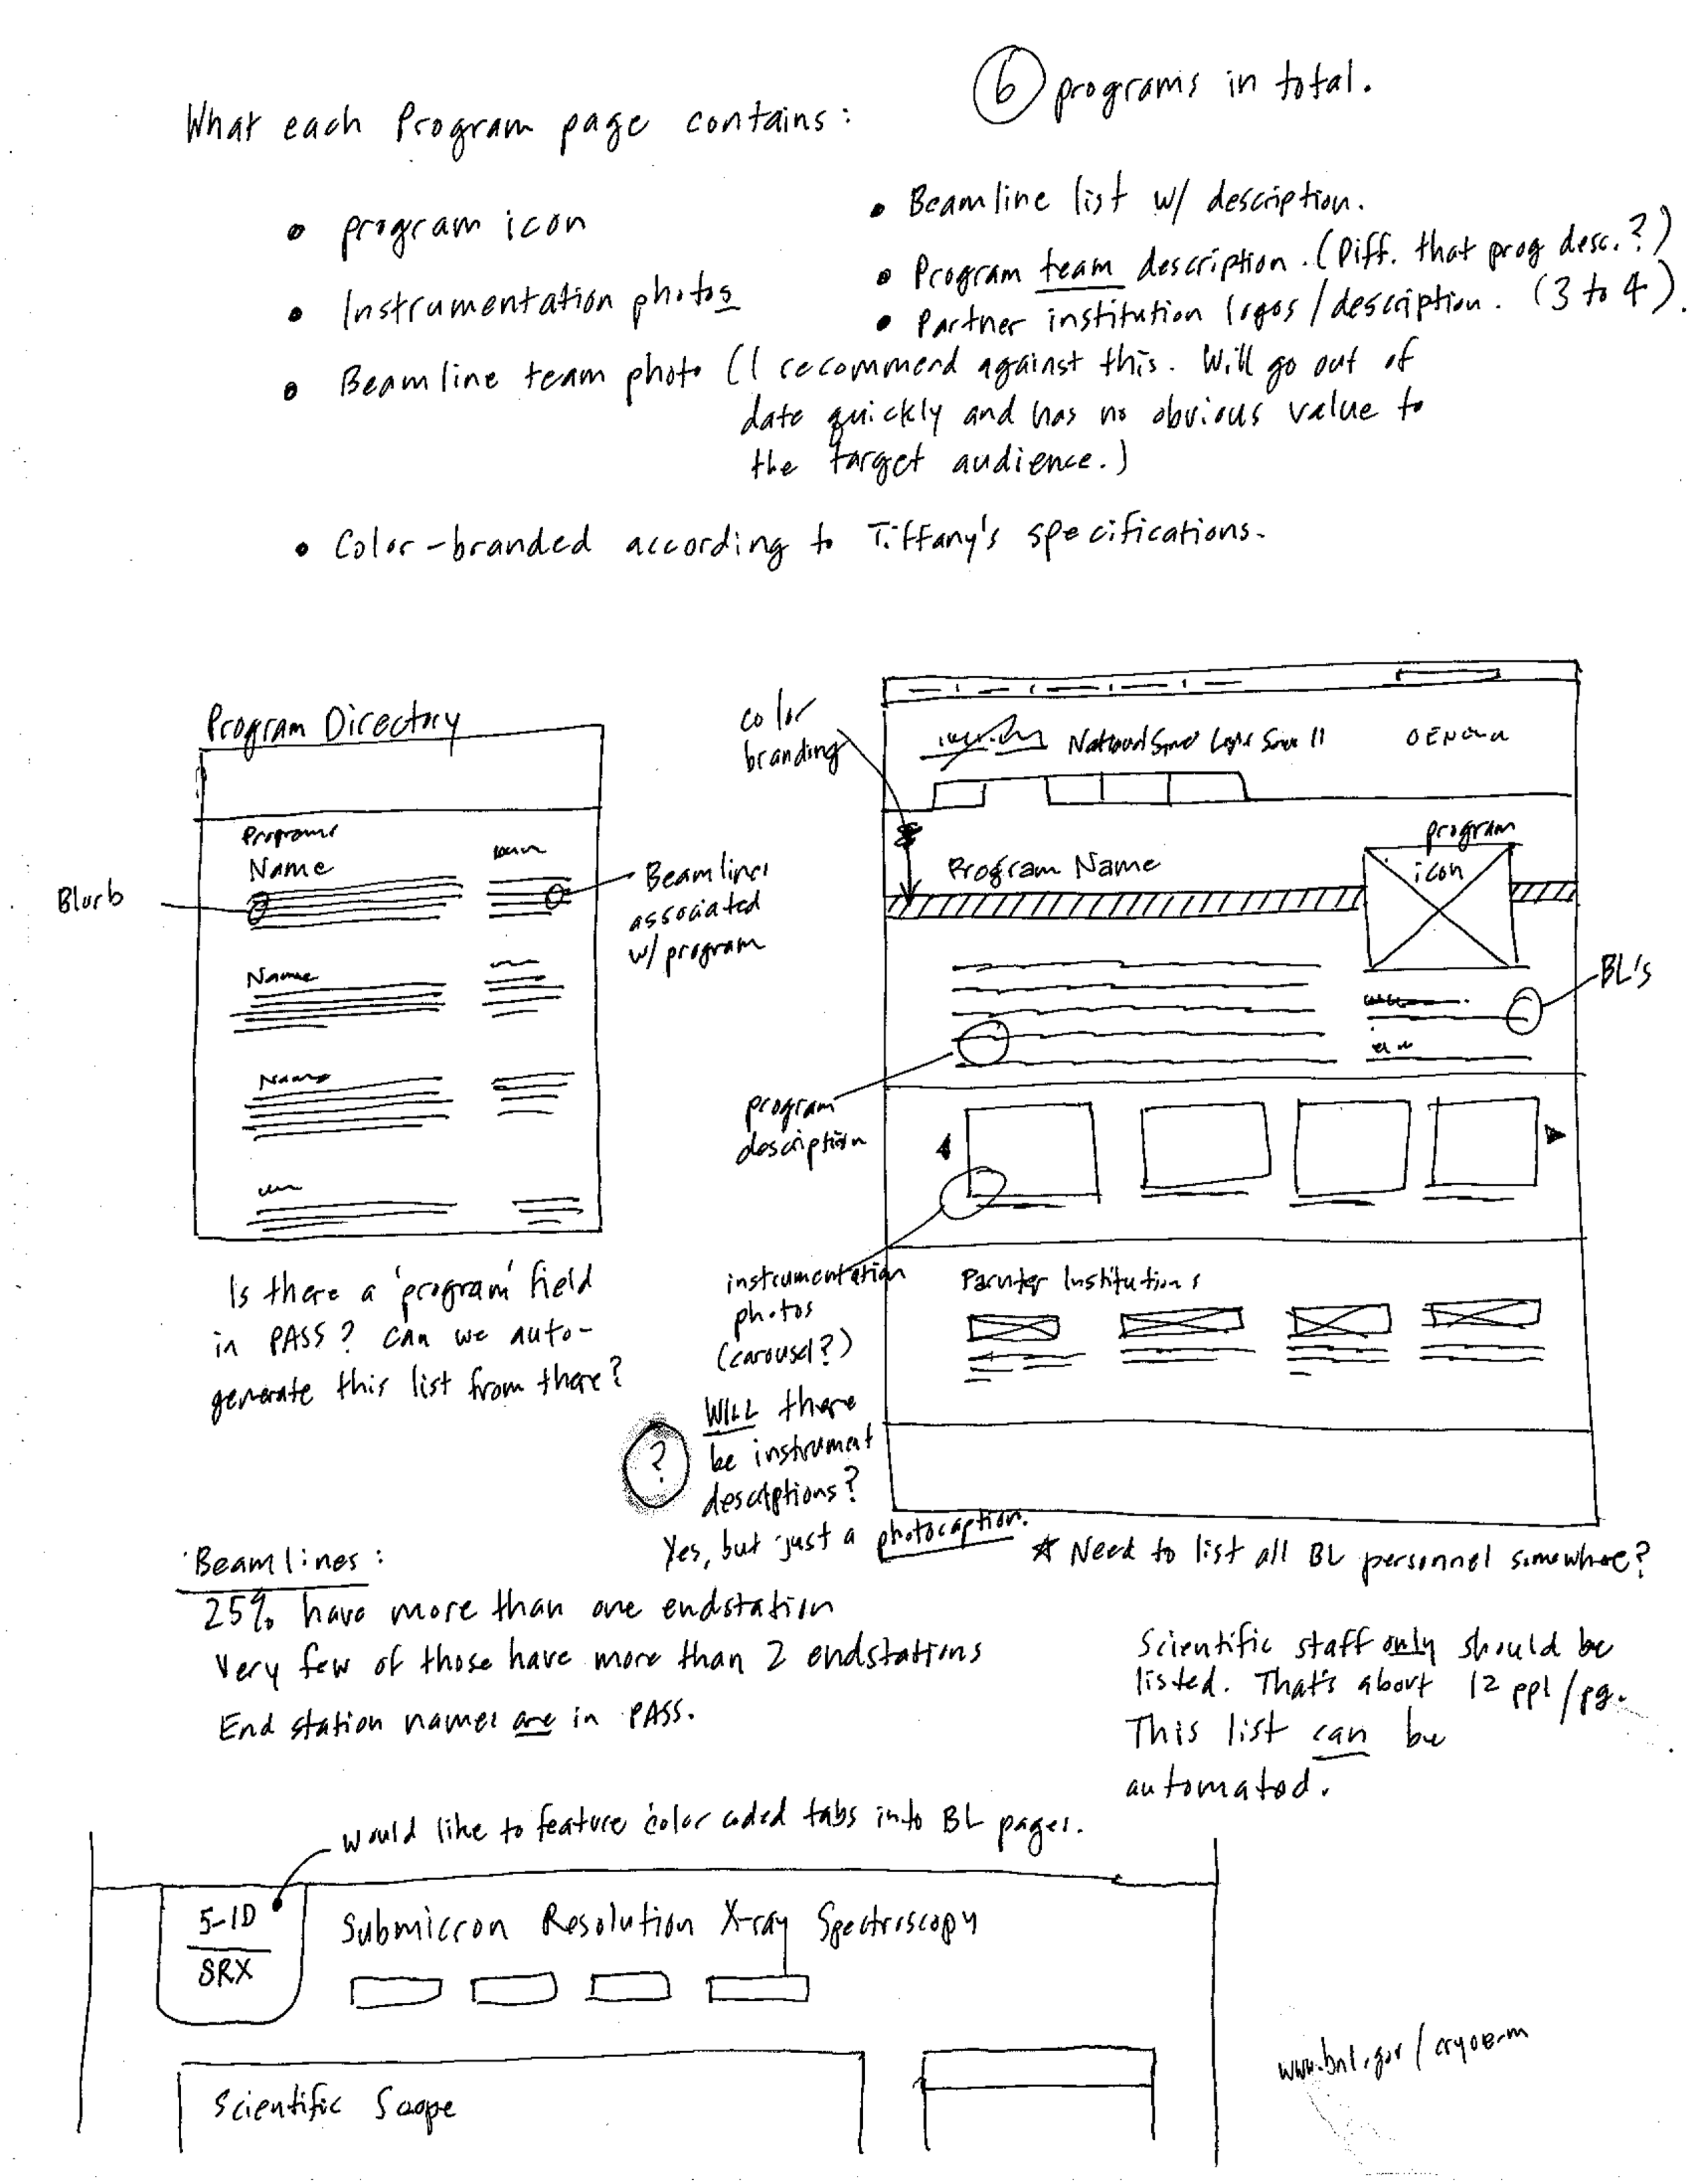 6 programs in total.
What each Program page contains:
• program icon
• Instrumentation photos
• Beamline team photo (I recommend against this. Will go out of
date quickly and has no obvious value to
the target audience.)
• Color-branded according to Tiffany's specifications.
• Beamline list w/ description.
• Program team description. (Diff. that prog desc.?)
• Partner institution logos/description. (3 to 4).
Program Directory
Programs
Name
Blurb
Beamlines
associated
w/ program
Name
Name
Is there a 'program' field
in PASS? Can we auto-
generate this list from there?
color
branding
Program Name
program
icon
BL's
program
description
instrumentation
photos
(carousel?)
Parnter Institutions
?
WILL there
be instrument
descriptions?
Yes, but just a photocaption.
* Need to list all BL personnel somewhere?
Scientific staff only should be
listed. That's about 12 ppl/pg.
This list can be
automated.
Beamlines:
25% have more than one endstation
Very few of those have more than 2 endstations
End station names are in PASS.
would like to feature color coded tabs into BL pages.
5-ID
SRX
Submicron Resolution X-ray Spectroscopy
Scientific Scope
www.bnl.gov/cryoem